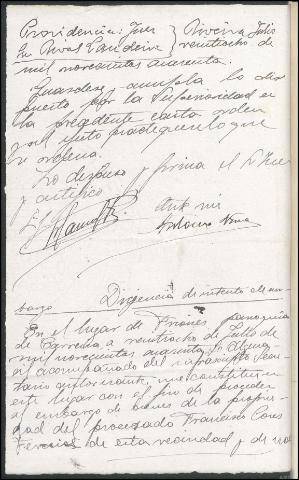 Providencia: Juez } Riveira Julio
Sr. Rivas Landeira } veintiocho de
mil novecientos cuarenta.
Guardese y cumpla lo dis
puesto por la Superioridad en
la precedente carta orden
y al efecto practiquense lo que
se ordena.
Lo dispuso y firma el Sr Juez
y certifico
Ante mi
Antonio
Diligencia de intento de em-
bargo
En el lugar de parroquia
de Carreira a veintiocho de Julio de
mil novecientos cuarenta, el Algua-
cil acompañado del infrascripto Secre
tario autorizante, me constitui en
este lugar con el fin de proceder
al embargo de bienes de la propie-
dad del procesado Francisco
de esta vecindad y de no